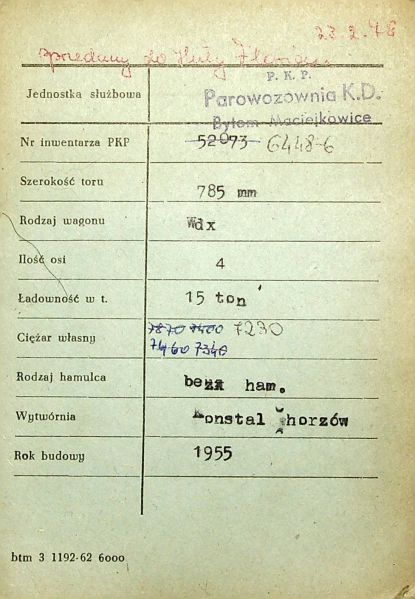 23.2.78
sprzedany do Huty Florian.
P. K. P.
Jednostka służbowa Parowozownia K.D.
Bytom Maciejkowice
Nr inwentarza PKP 52073 6448-6
Szerokość toru 785 mm
Rodzaj wagonu Wdx
Ilość osi 4
Ładowność w t. 15 ton
Ciężar własny 7870 7400 7230
7460 7340
Rodzaj hamulca bezx ham.
Wytwórnia Konstal Chorzów
Rok budowy 1955
btm 3 1192-62 6000